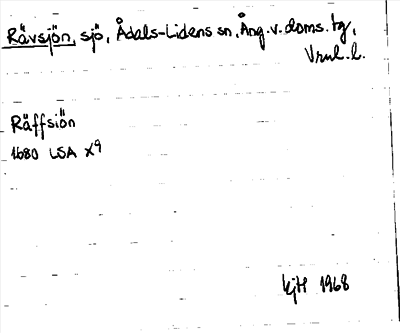 Rävsjön, sjö, Ådals-Lidens sn, Ång.v.doms.tg,
Vrnl.l.
Räffsiön
1680 LSA X9
KjH 1968